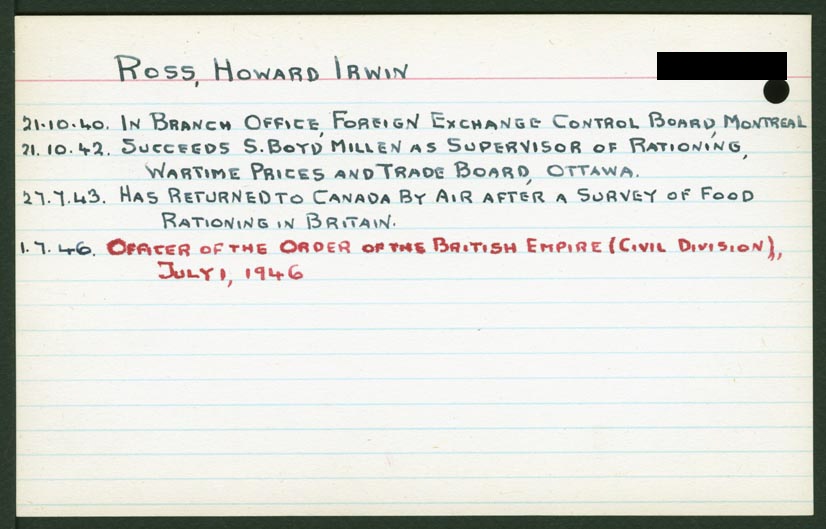 ROSS, HOWARD IRWIN
21.10.40. IN BRANCH OFFICE, FOREIGN EXCHANGE CONTROL BOARD, MONTREAL
21.10.42. SUCCEEDS S. BOYD MILLEN AS SUPERVISOR OF RATIONING,
WARTIME PRICES AND TRADE BOARD, OTTAWA.
27.7.43. HAS RETURNED TO CANADA BY AIR AFTER A SURVEY OF FOOD
RATIONING IN BRITAIN.
1.7.46. OFFICER OF THE ORDER OF THE BRITISH EMPIRE (CIVIL DIVISION),
JULY 1, 1946